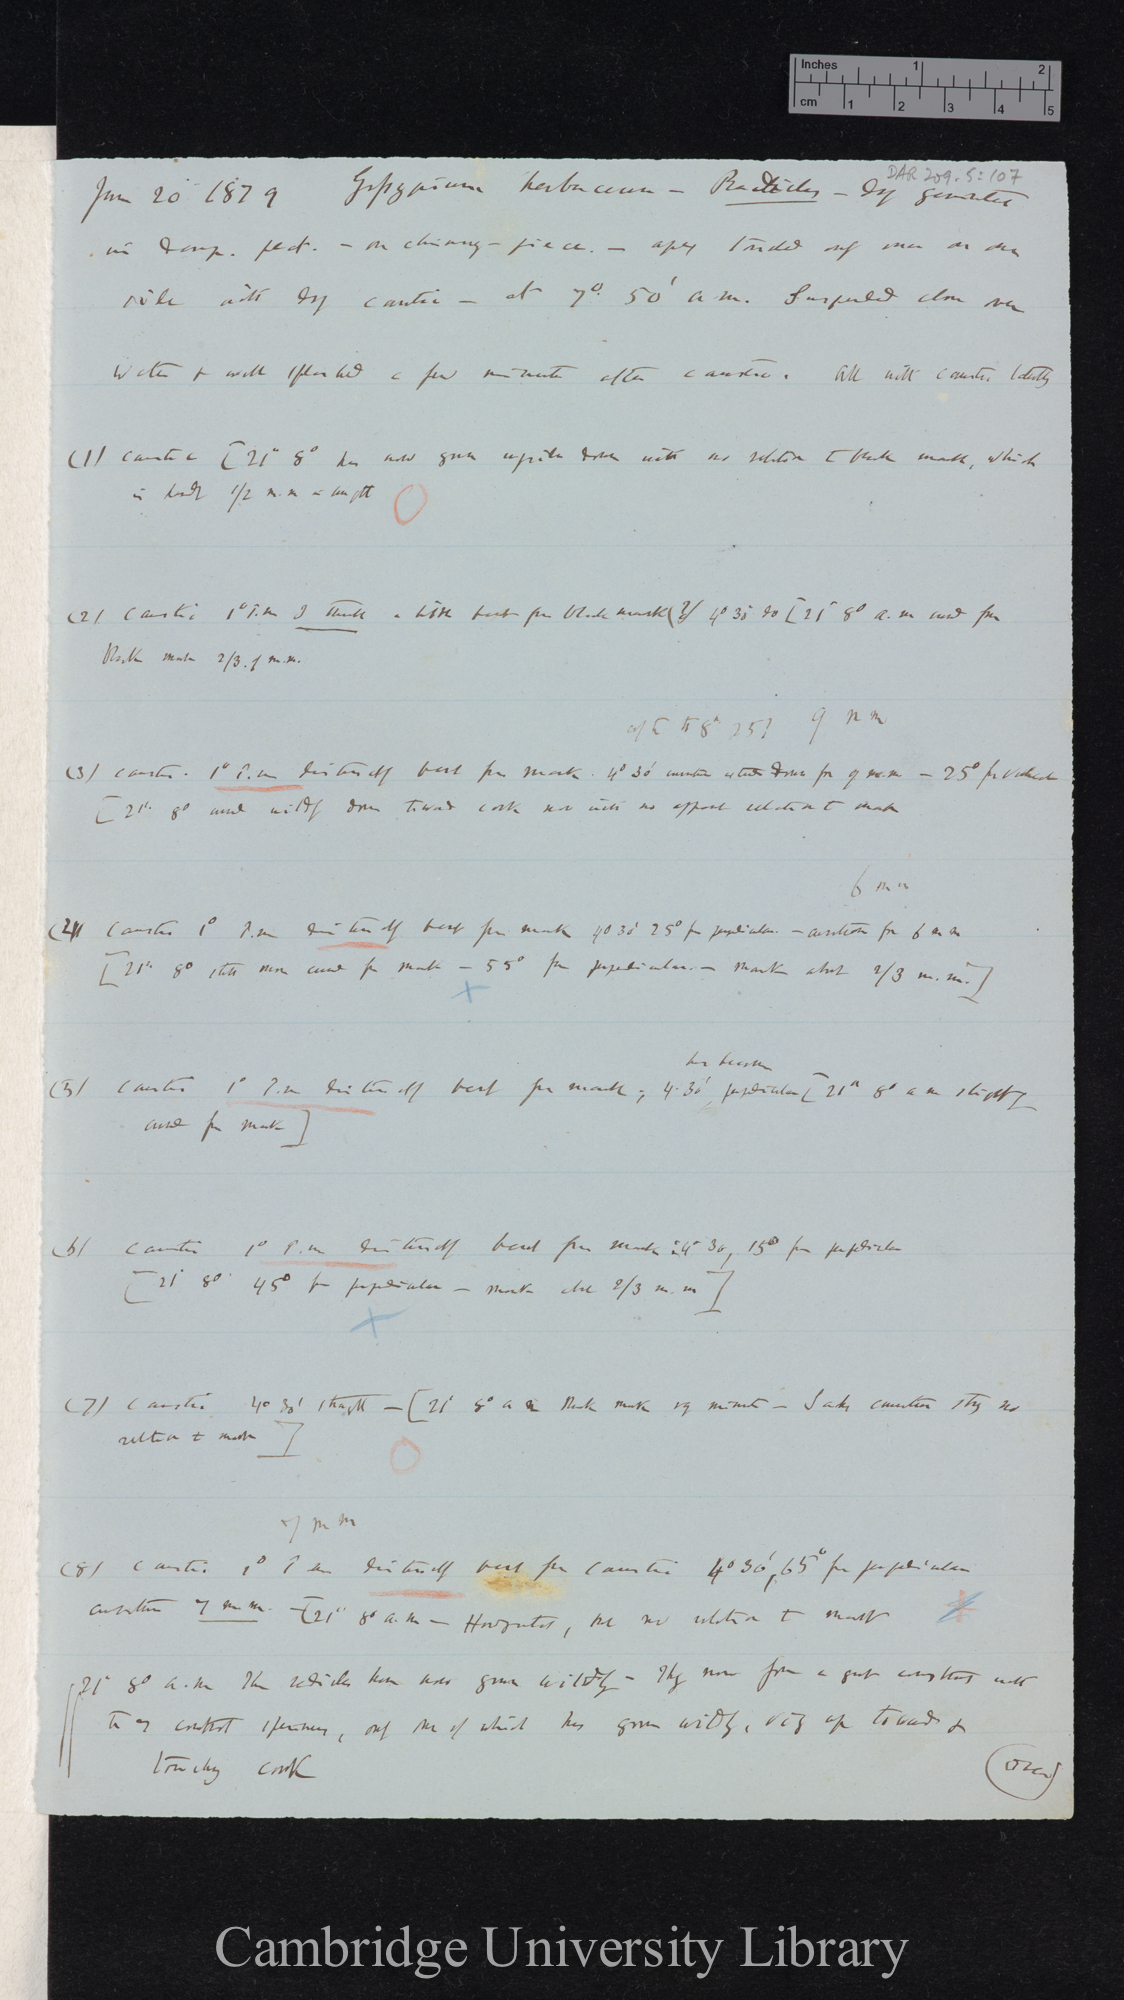 Inches 1 2
cm 1 2 3 4 5
DAR 209.5:107
Jan 20 1879 Gossypium herbaceum — Radicles — germinated
in damp. peat. — on chimney-piece. — apex touched on one
side with dry caustic — at 7° 50' a.m. Suspended close over
water & well splashed a few minutes after caustic. All with caustic
(1) Caustic [21st 8° has now grown upside down with no relation to black mark, which
is hardly 1/2 m.m in length
(2) Caustic 1° P.m I think a little bent from black mark (?) 4° 30' do [21st 8° a.m curved from
Black mark 2/3 of m.m.
9 m m
(3) Caustic. 1° P.m distinctly bent from mark. 4° 30' 9 m.m — 25° from
[21st 8° wildly down towards cork now with no apparent relation to mark
6 m m
(4) Caustic 1° P.m distinctly bent from mark 4° 30' 25° from perpendicular — curvature for 6 m m
[21st 8° still more curved from mark — 55° from perpendicular — mark about 2/3 m.m.]
has become
(5) Caustic 1° P.m distinctly bent from mark; 4° 30' perpendicular [21st 8° a m slightly
curved from mark]
(6) Caustic 1° P.m distinctly bent from mark: 4° 30, 15° from perpendicular
[21st 8° 45° from perpendicular — mark about 2/3 m.m]
(7) Caustic 4° 30' straight — [21st 8° a m Black mark very minute — no
relation to mark]
7 m m
(8) Caustic 1° P m distinctly bent from caustic 4° 30', 65° from perpendicular
curvature 7 m.m. — [21st 8° a.m — Horizontal, but no relation to mark
21st 8° a.m The radicles have now grown wildly — They now form a great contrast with
the control specimens, only one of which has grown wildly, viz up towards &
touching cork
(Over)
Cambridge University Library